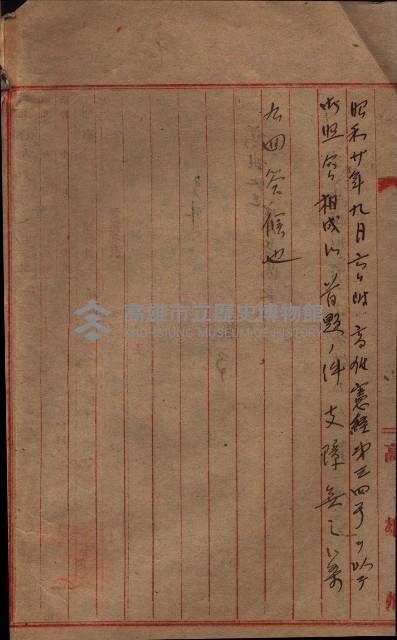 昭和廿年九月六日附高雄憲経第三四号ヲ以テ
御照会相成候首題ノ件支障無之候条
右回答候也
高雄市立歷史博物館
KAOHSIUNG MUSEUM OF HISTORY
高雄